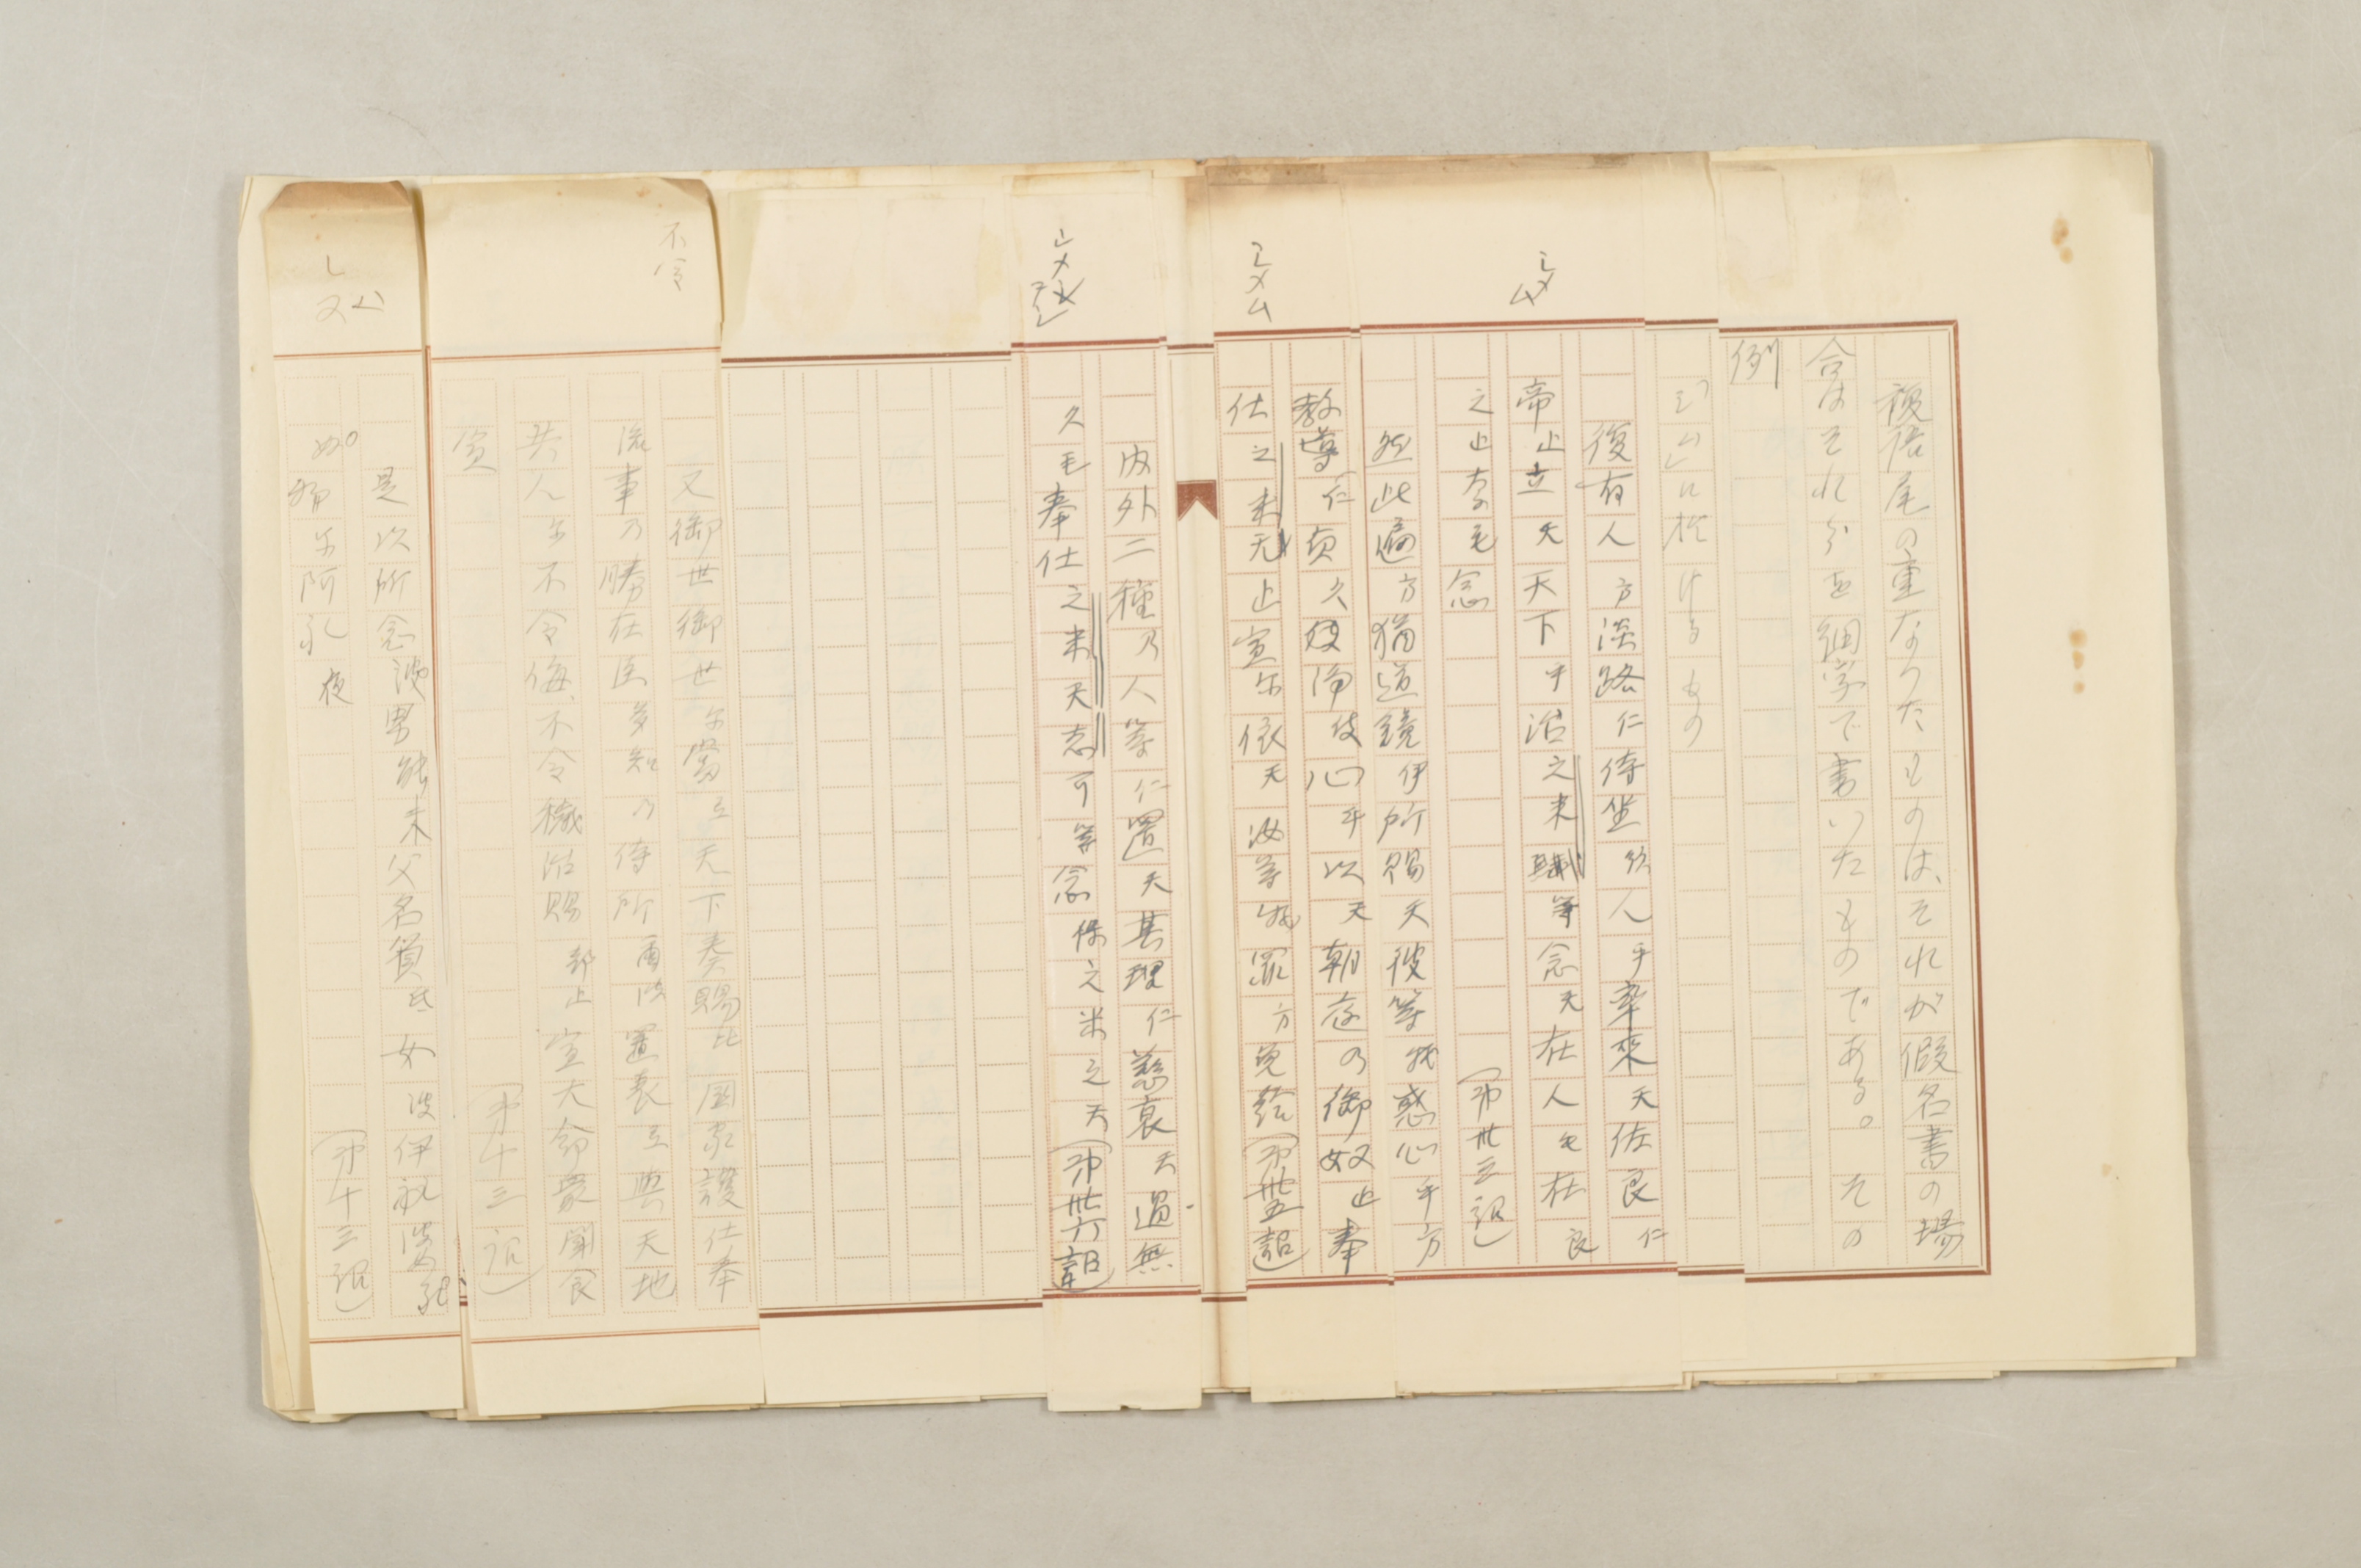 複語尾の重なつたものは、それが假名書の場
合はそれらを細字で書いたものである。その
例
に於けるもの
シメム
復有人方淡路仁侍坐流人乎率来天佐良仁
帝止立天天下乎治之米等念天在人毛在良
之止奈毛念 (第卅三詔)
シメム
然此遍方猶道鏡伊所賜天彼等我惑心乎方
教導仁貞久浄伎心乎以天朝庭乃御奴止奉
仕之米无止宣尓依天汝等我罪方免給(第卅五詔)
シメ
内外二種乃人等仁置天其理仁慈哀天過無
久毛奉仕之米天志可等念保之米之天(第卅六詔)
不令
又御世御世尓當天天下奏賜比国家護仕奉
流事乃勝在臣多知乃侍所尓波置表天與天地
共人尓不令侮、不令穢治賜部止宣大命衆聞食
宣 (第十三詔)
是以所念波男能未父名負弖女波伊祓婆記
物尓阿礼夜 (第十三詔)